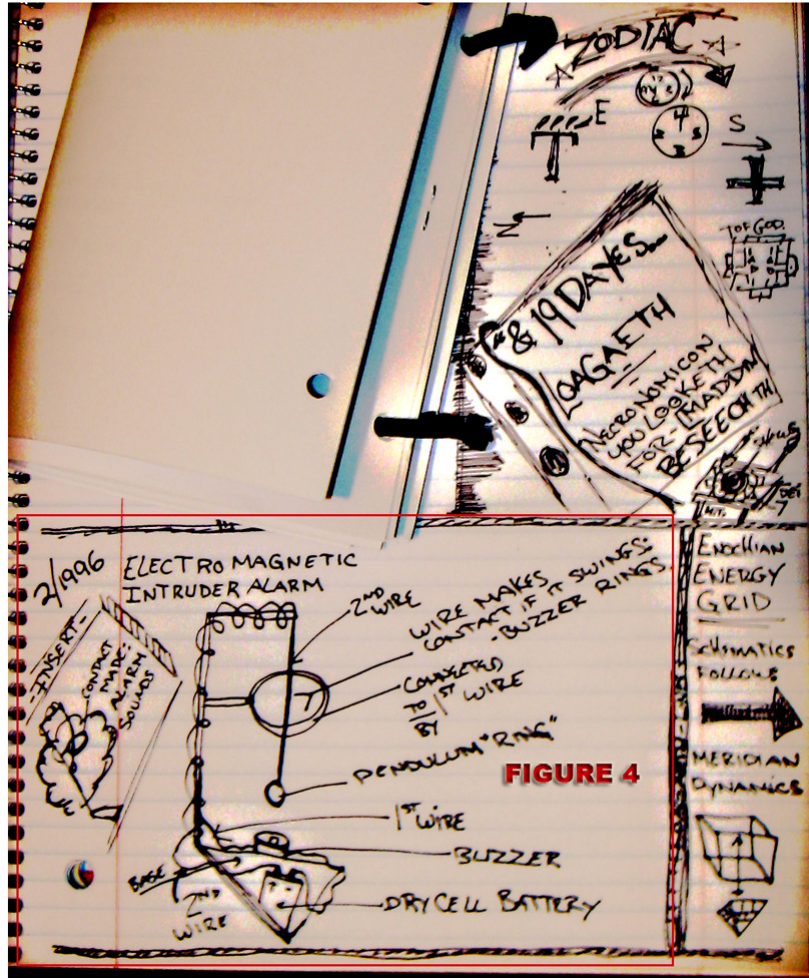 ZODIAC
E
4
2
3
S
N
T OF GOD.
& 19 DAYES...
LOAGAETH
NECRONOMICON
YOU LOOKETH
FOR - MADDIN
BESEECHTH
2/1996
ELECTROMAGNETIC
INTRUDER ALARM
-INSERT-
CONTACT
MADE:
ALARM
SOUNDS
2ND
WIRE
WIRE MAKES
CONTACT IF IT SWINGS:
-BUZZER RINGS
CONNECTED
TO 1ST WIRE
BY
PENDULUM "RING"
FIGURE 4
1ST WIRE
BUZZER
BASE
2ND
WIRE
DRY CELL BATTERY
ENOCHIAN
ENERGY
GRID
SCHEMATICS
FOLLOW
MERIDIAN
DYNAMICS